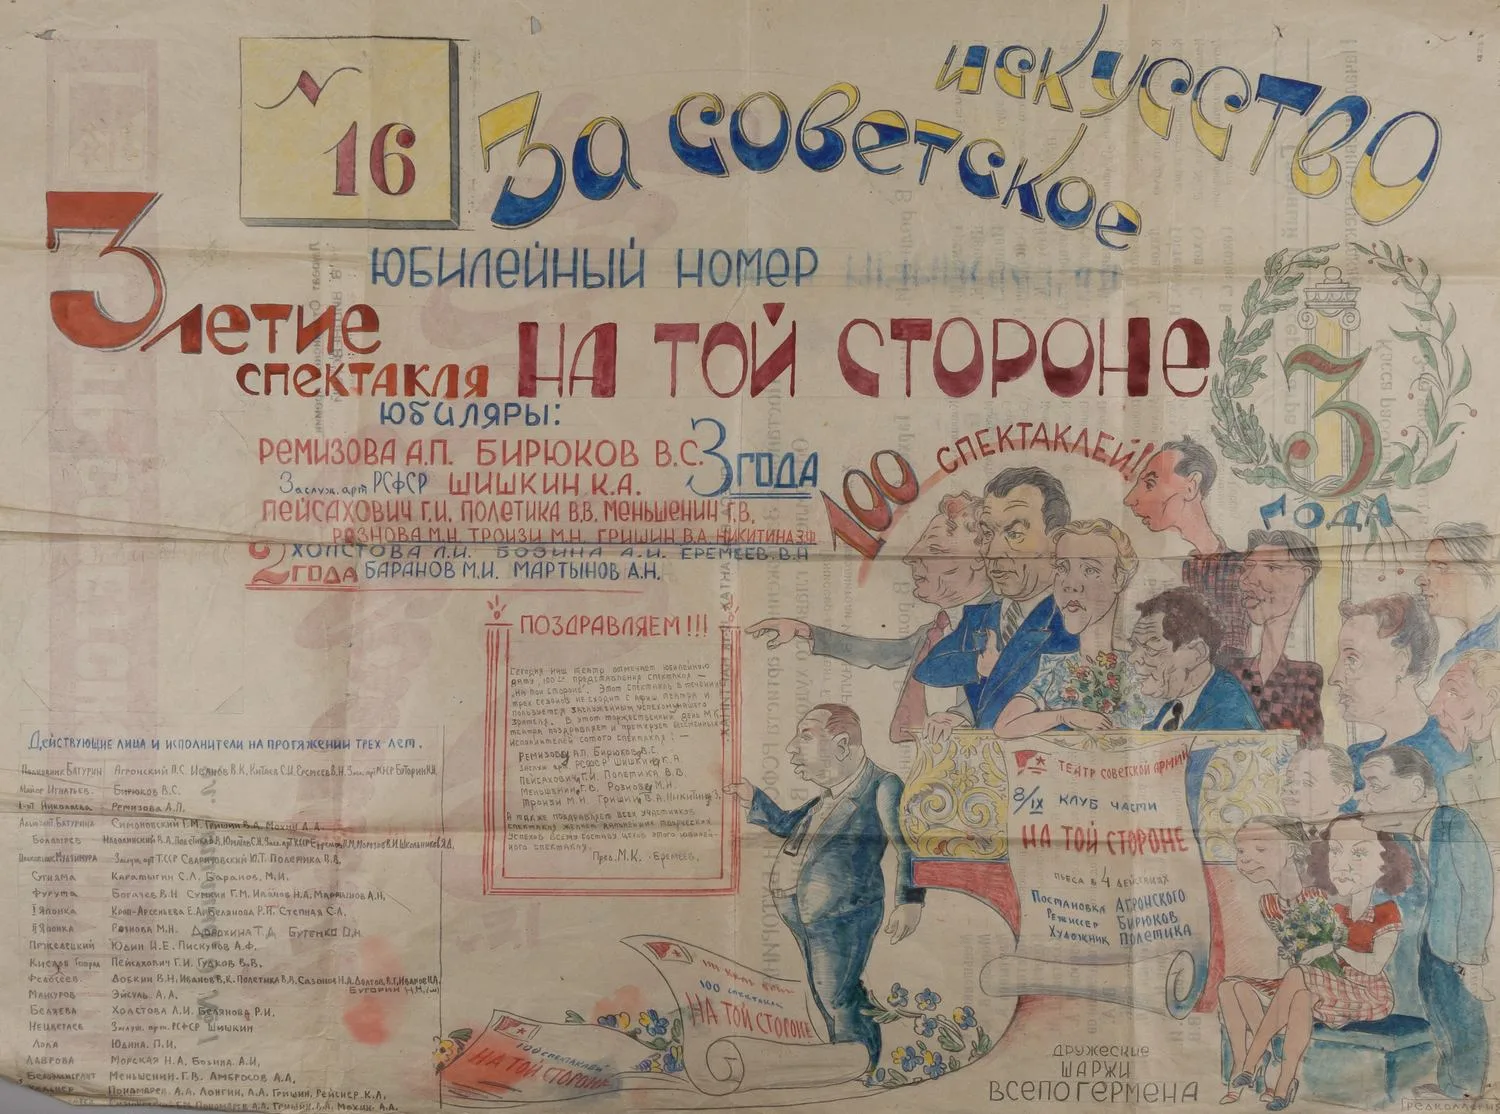 N 16
За советское искусство
ЮБИЛЕЙНЫЙ НОМЕР
3 летие спектакля НА ТОЙ СТОРОНЕ
ЮБИЛЯРЫ:
РЕМИЗОВА А.П. БИРЮКОВ В.С. 3 ГОДА
Заслуж. арт РСФСР ШИШКИН К.А.
ПЕЙСАХОВИЧ Г.И. ПОЛЕТИКА В.В. МЕНЬШЕНИН Г.В.
РОЗНОВА М.Н. ТРОИЗИ М.Н. ГРИШИН В.А. НИКИТИНА
2 ГОДА ХОЛСТОВА Л.И. БОЗИНА А.И. ЕРЕМЕЕВ В.Н
БАРАНОВ М.И. МАРТЫНОВ А.Н.
100 СПЕКТАКЛЕЙ!!
3 ГОДА
ПОЗДРАВЛЯЕМ!!!
Сегодня наш театр отмечает юбилейную
дату, 100 представления спектакля —
"На той стороне". Этот спектакль в течении
трех сезонов не сходит с афиш театра и
пользуется заслуженным успехом нашего
зрителя. В этот торжественный день М.К.
театра поздравляет и
исполнителей сотого спектакля: —
Ремизову А.П. Бирюков В.С.
Заслуж арт РСФСР Шишкину К.А.
Пейсахович Г.И. Полетика В.В.
Меньшенин Г.В. Рознову М.Н.
Троизи М.И. Гришин В.А. Никитину З.
А также поздравляет всех участников
спектакля желает дальнейших творческих
успехов всему составу цехов этого юбилей-
ного спектакля.
Пред. М.К. - Еремеев.
Действующие лица и исполнители на протяжении трех лет.
Полковник Батурин Агронский А.С. Иванов В.К. Китаев С.И. Еремеев В.Н. Засл. арт.
Майор Игнатьев. Бирюков В.С.
Николаева Ремизова А.П.
Адъютант Батурина Симоновский Г.М. Гришин В.А. Мохин А.А.
Засл. арт ТССР Свариповский Ю.Т. Полетика В.В.
Каратыгин С.Л. Баранов. М.И.
Фурута Богачев В.Н Сумкин Г.М. Иванов Н.А. Мартынов А.Н.
I Японка Крап-Арсеньева Е.А. Белянова Р.И. Степная С.Л.
II Японка Рознова М.Н. Дорохина Т.Д Бутенко О.Н.
Юдин И.Е. Пискунов А.Ф.
Пейсахович Г.И. Гудков В.В.
Добкин В.Н. Иванов В.К. Полетика В.В. Сазонов Н.А. Долгов В.Г. Иванов И.А.
Буторин Н.Н.
Мансуров Эйсуль А.А.
Беляева Холстова Л.И. Белянова Р.И.
Нецветаев Заслуж. арт. РСФСР Шишкин
Лола Юдина. П.И.
Лаврова Морская Н.А. Бозина А.И.
Белоэмигрант Меньшенин. Г.В. Амбросов А.А.
Пономарев. А.А. Лонгин. Л.А. Гришин, Рейснер. К.Л,
Пономарев А.А. Гришин. В.А. Мохин. А.А.
ТЕАТР СОВЕТСКОЙ АРМИИ
8/IX КЛУБ ЧАСТИ
НА ТОЙ СТОРОНЕ
ПЬЕСА В 4 ДЕЙСТВИЯХ
Постановка АГРОНСКОГО
Режиссер БИРЮКОВ
Художник ПОЛЕТИКА
100 спектакль
НА ТОЙ СТОРОНЕ
100 СПЕКТАКЛЕЙ
НА ТОЙ СТОРОНЕ
ДРУЖЕСКИЕ
ШАРЖИ
ВСЕПОГЕРМЕНА
Редколлегия